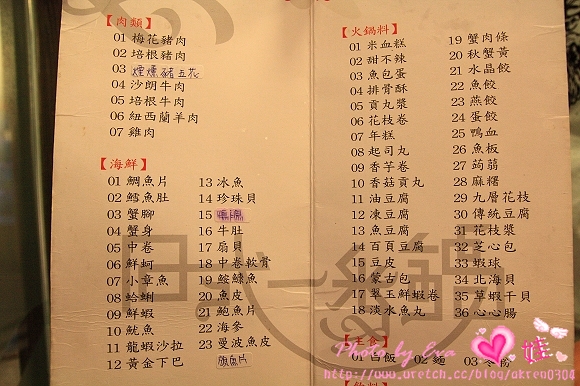 【肉類】
01 梅花豬肉
02 培根豬肉
03 煙燻豬五花
04 沙朗牛肉
05 培根牛肉
06 紐西蘭羊肉
07 雞肉
【海鮮】
01 鯛魚片
02 鱈魚肚
03 蟹腳
04 蟹身
05 中卷
06 鮮蚵
07 小章魚
08 蛤蜊
09 鮮蝦
10 魷魚
11 龍蝦沙拉
12 黃金下巴
13 冰魚
14 珍珠貝
15
16 牛肚
17 扇貝
18 中卷軟骨
19 鮟鱇魚
20 魚皮
21 鮑魚片
22 海參
23 曼波魚皮
旗魚片
【火鍋料】
01 米血糕
02 甜不辣
03 魚包蛋
04 排骨酥
05 貢丸漿
06 花枝卷
07 年糕
08 起司丸
09 香芋卷
10 香菇貢丸
11 油豆腐
12 凍豆腐
13 魚豆腐
14 百頁豆腐
15 豆皮
16 蒙古包
17 翠玉鮮蝦卷
18 淡水魚丸
19 蟹肉條
20 秋蟹黃
21 水晶餃
22 魚餃
23 燕餃
24 蛋餃
25 鴨血
26 魚板
27 蒟蒻
28 麻糬
29 九層花枝
30 傳統豆腐
31 花枝漿
32 芝心包
33 蝦球
34 北海貝
35 草蝦干貝
36 心心腸
【主食】
01 白飯 02 麵 03 冬粉
【飲料】
Photo by Eva
娃
http://www.wretch.cc/blog/akron0304